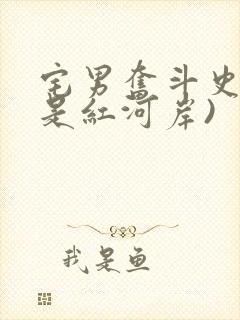 宅男奋斗史
是红河岸)
我是鱼